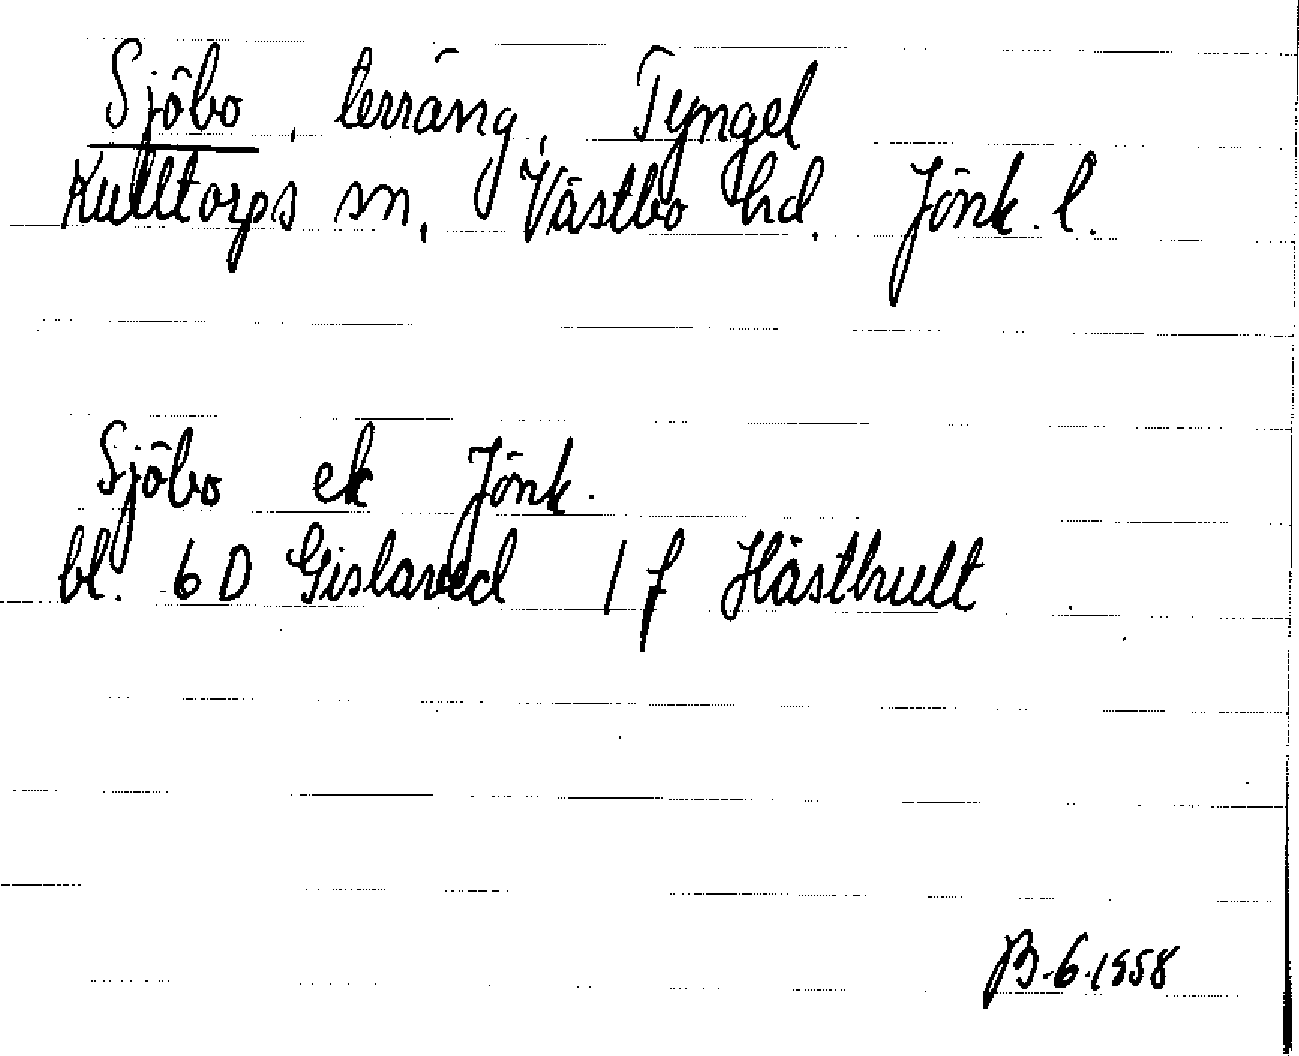 Sjöbo, terräng, Tyngel
Kulltorps sn, Västbo hd. Jönk. l.
Sjöbo ek Jönk.
bl. 6 D Gislaved 1 f Hästhult
B-6-1958